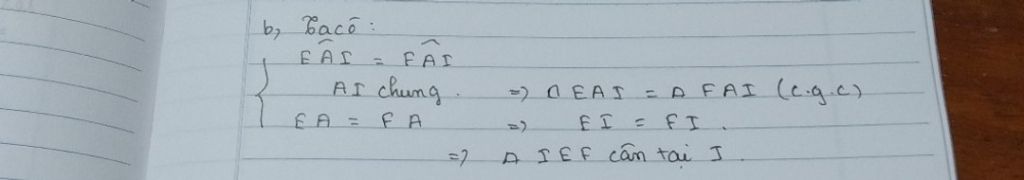 b, Ta có :
EÂI = FÂI
AI chung. => Δ EAI = Δ FAI (c.g.c)
EA = FA => EI = FI.
=> Δ IEF cân tại I.